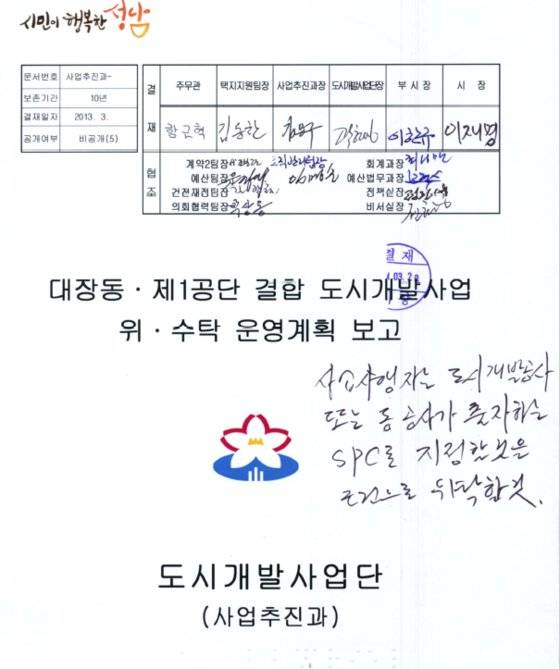 시민이 행복한 성남
문서번호 사업추진과-
보존기간 10년
결재일자 2013. 3.
공개여부 비공개(5)
결재
주무관 택지지원팀장 사업추진과장 도시개발사업단장 부시장 시장
황근혁 김동한 이재명
협조
계약2팀장 회계과장
예산팀장 예산법무과장
건전재정팀장 정책실장
의회협력팀장 비서실장
결재
대장동 · 제1공단 결합 도시개발사업
위 · 수탁 운영계획 보고
사업시행자는 도시개발공사
또는 동 공사가 출자하는
SPC로 지정할것은
조건으로 위탁할것.
도시개발사업단
(사업추진과)